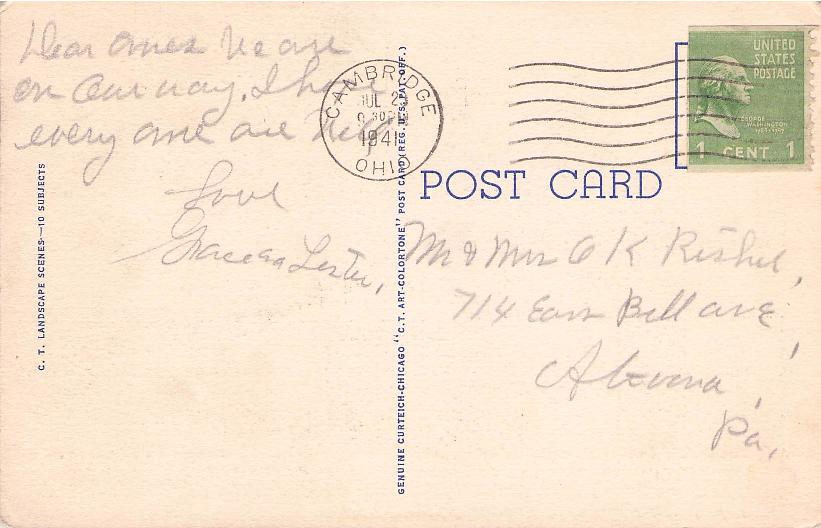 Dear ones We are
on our way. I hope
every one are
Love
Lester,
C. T. LANDSCAPE SCENES—10 SUBJECTS
GENUINE CURTEICH-CHICAGO "C.T. ART-COLORTONE" POST CARD (REG. U.S. PAT. OFF.)
CAMBRIDGE
JUL 2
30 PM
1941
OHIO
UNITED
STATES
POSTAGE
GEORGE
WASHINGTON
1 CENT 1
POST CARD
Mr & Mrs O K Rishel,
714 East Bell ave,
Altoona,
Pa,